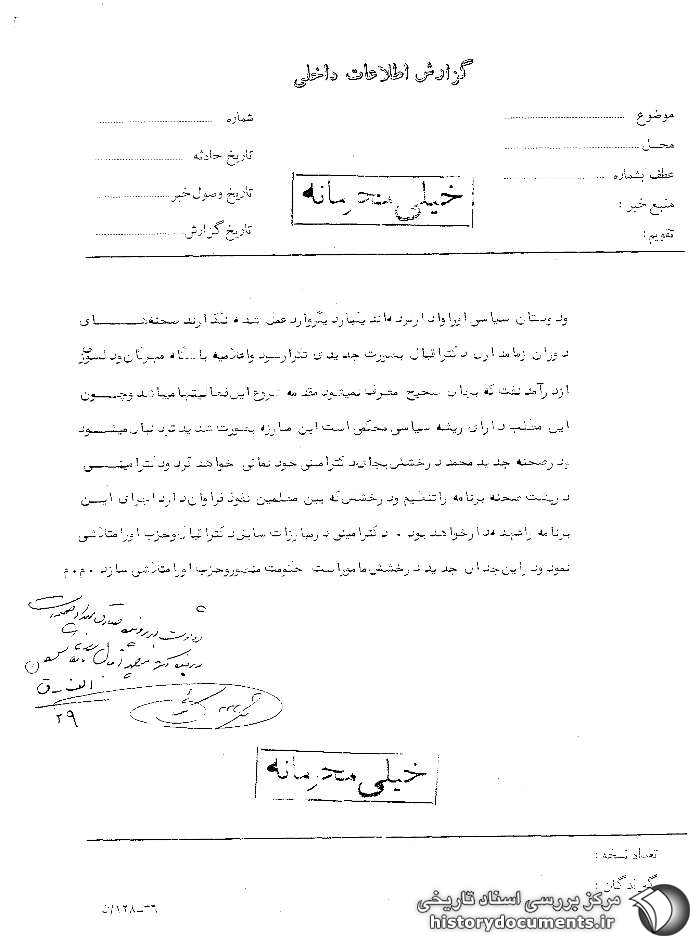 گزارش اطلاعات داخلی
موضوع
محل
عطف بشماره
منبع خبر :
تقویم :
شماره
تاریخ حادثه
تاریخ وصول خبر
تاریخ گزارش
خیلی محرمانه
ودوستان سیاسی اورا وادار نموده‌اند یکبار دیگر وارد عمل شده نگذارند صحنه‌های
دوران زمامداری دکتراقبال بصورت جدیدی تکرار شود واعلامیه باشگاه مهرگان
از درآمد نفت که بیان صحیح مصرف نمیشود مقدمه شروع این فعالیتها میباشد وچون
این مطلب دارای ریشه سیاسی محکمی است این مبارزه بصورت شدیدتر دنبال میشود
ودر صحنه جدید محمد درخشش بجای دکترامینی خودنمائی خواهد کرد ودکترامینی
درپشت صحنه برنامه را تنظیم ودرخشش که بین معلمین نفوذ فراوان دارد اجرای این
برنامه را عهده‌دار خواهد بود ۰ دکترامینی درمبارزات سابق دکتراقبال وحزب اورا متلاشی
نمود ودراین جدال جدید درخشش مامور است حکومت منصور وحزب اورا متلاشی سازد ۰م۰م
۲۹
خیلی محرمانه
تعداد نسخه :
گیرندگان :
مرکز بررسی اسناد تاریخی
historydocuments.ir